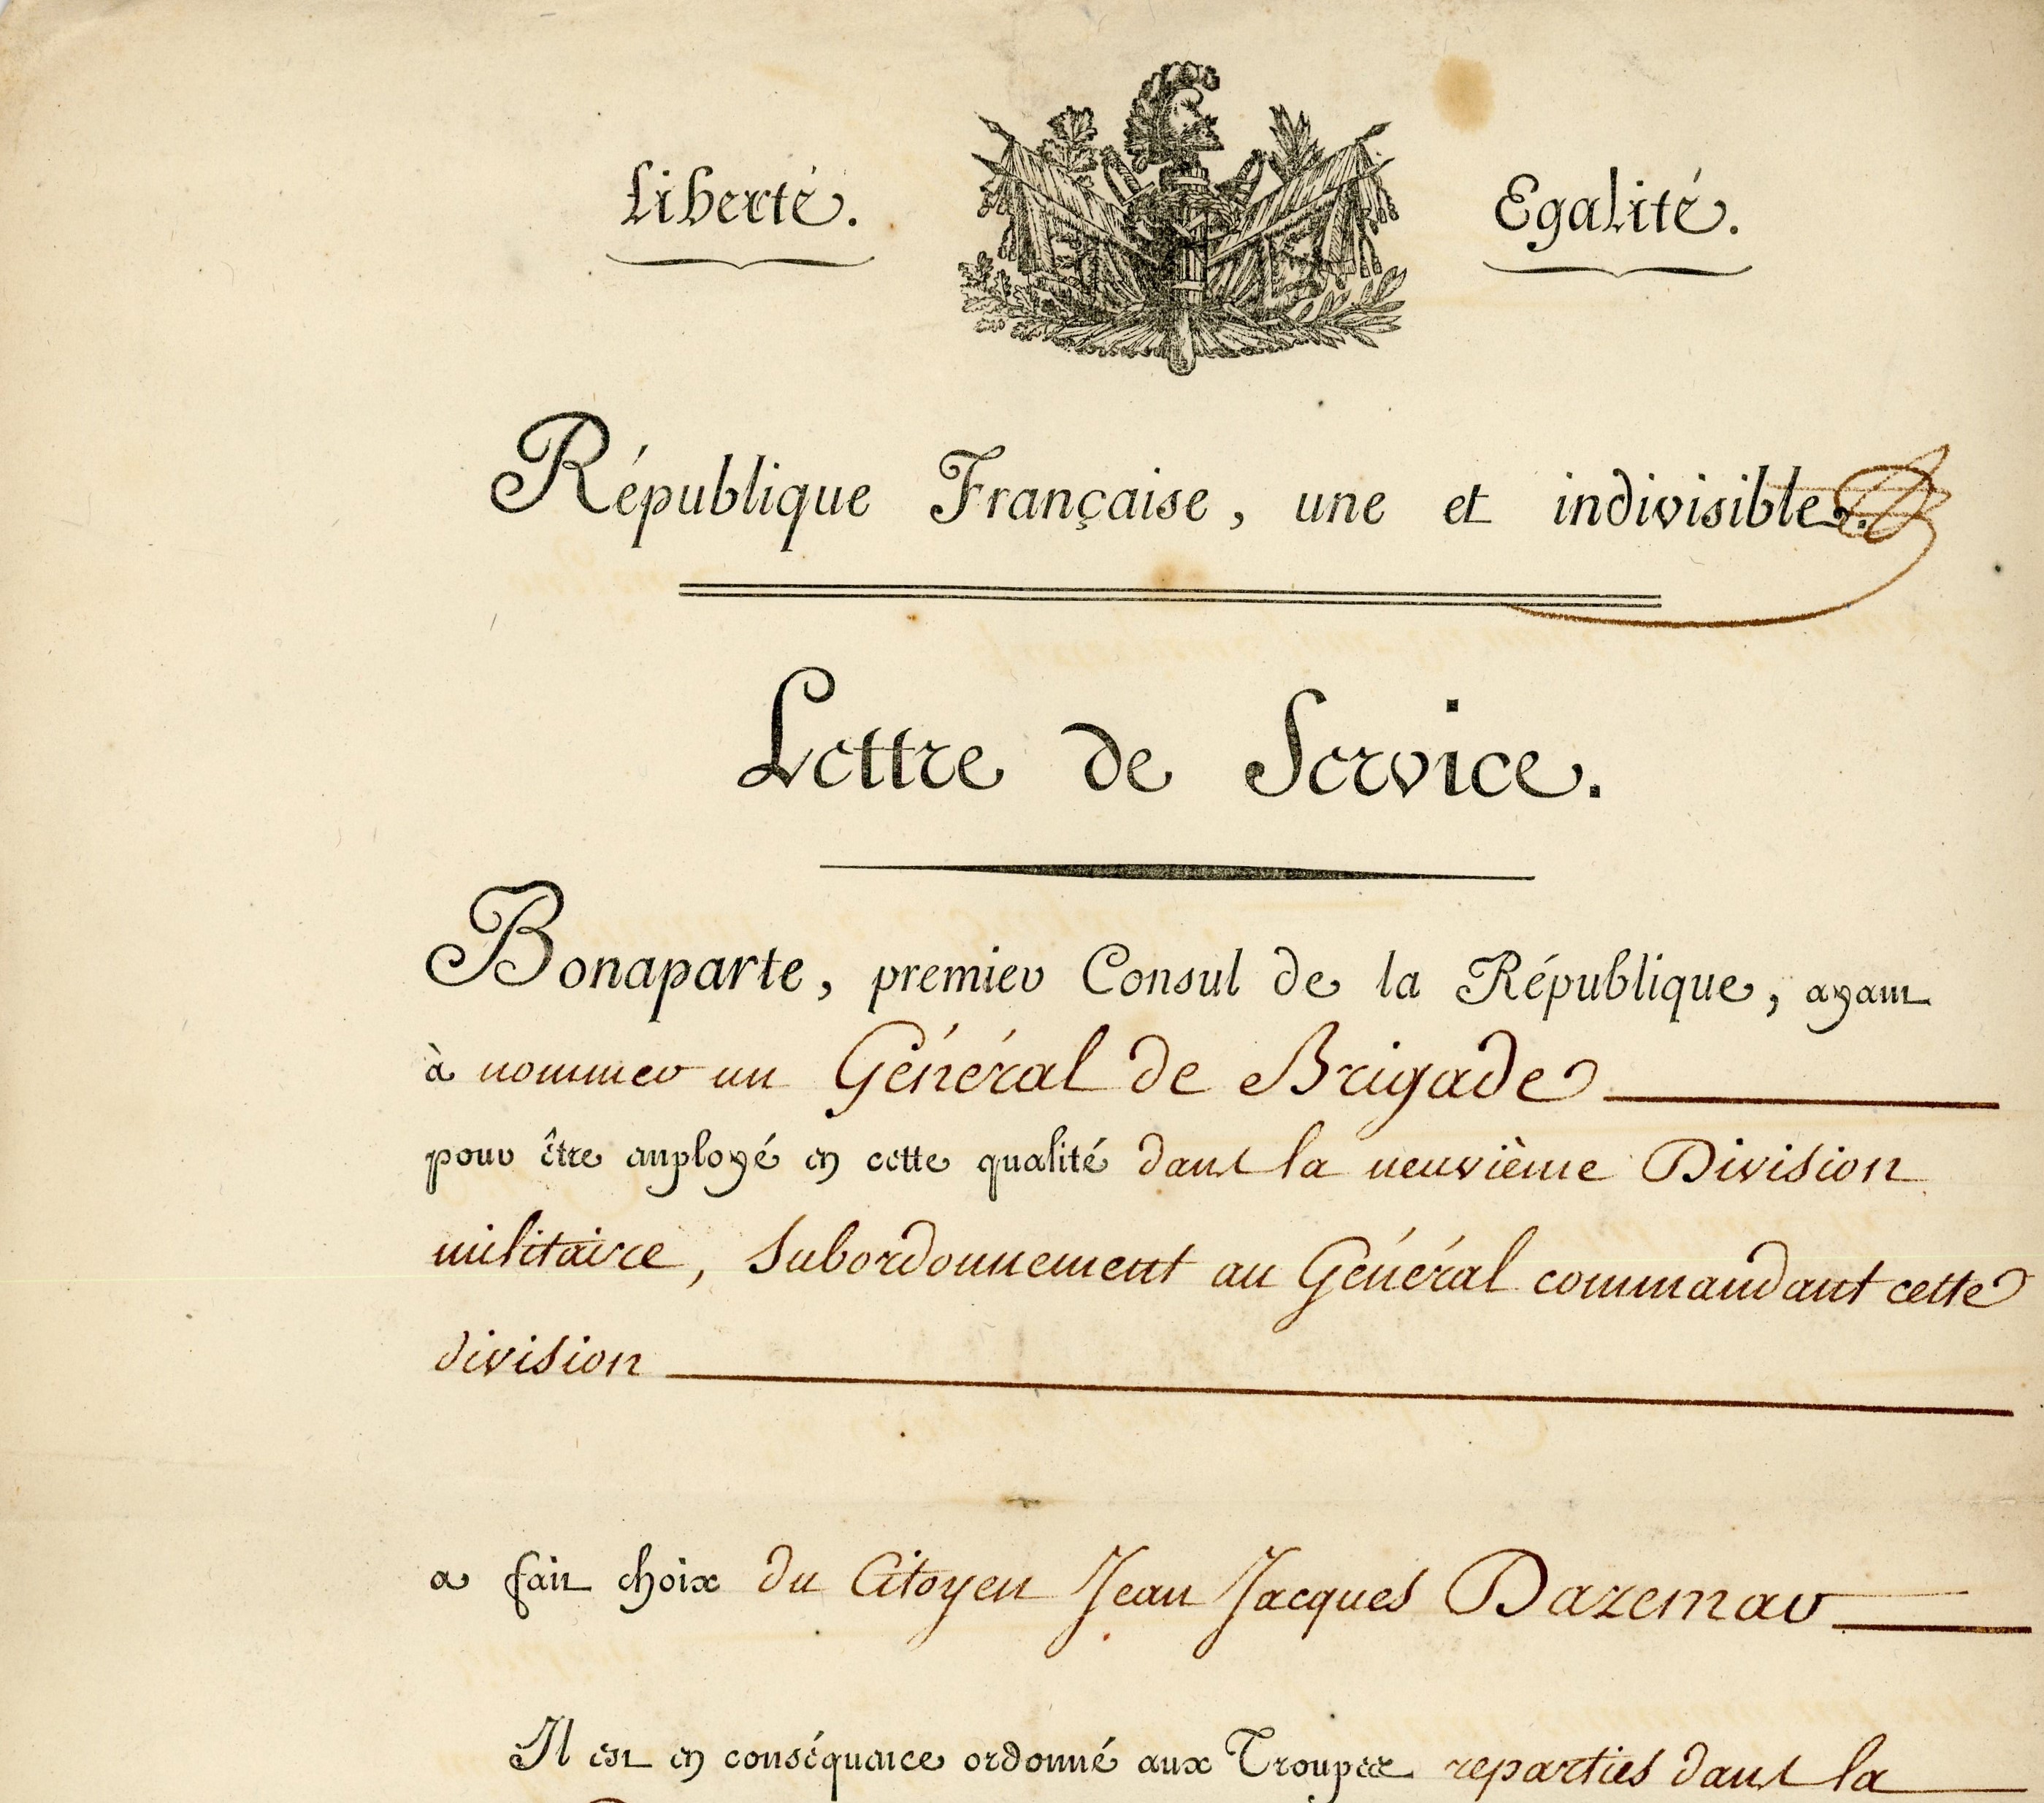 Liberté. Egalité.
République Française, une et indivisible.
Lettre de Service.
Bonaparte, premier Consul de la République, ayant
à nommer un Général de Brigade
pour être employé en cette qualité dans la neuvième Division
militaire, Subordonnement au Général commandant cette
division
a fait choix du Citoyen Jean Jacques Dazemar
Il est en conséquence ordonné aux Troupes reparties dans la